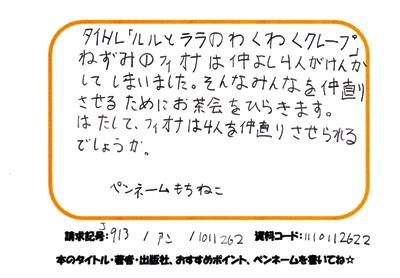 タイトル「ルルとララのわくわくクレープ」
ねずみのフィオナは仲よし4人がけんか
してしまいました。そんなみんなを仲直り
させるためにお茶会をひらきます。
はたして、フィオナは4人を仲直りさせられる
でしょうか。
ペンネームもちねこ
請求記号:J913 / アン / 1011262 資料コード:1110112622
本のタイトル・著者・出版社、おすすめポイント、ペンネームを書いてね☆